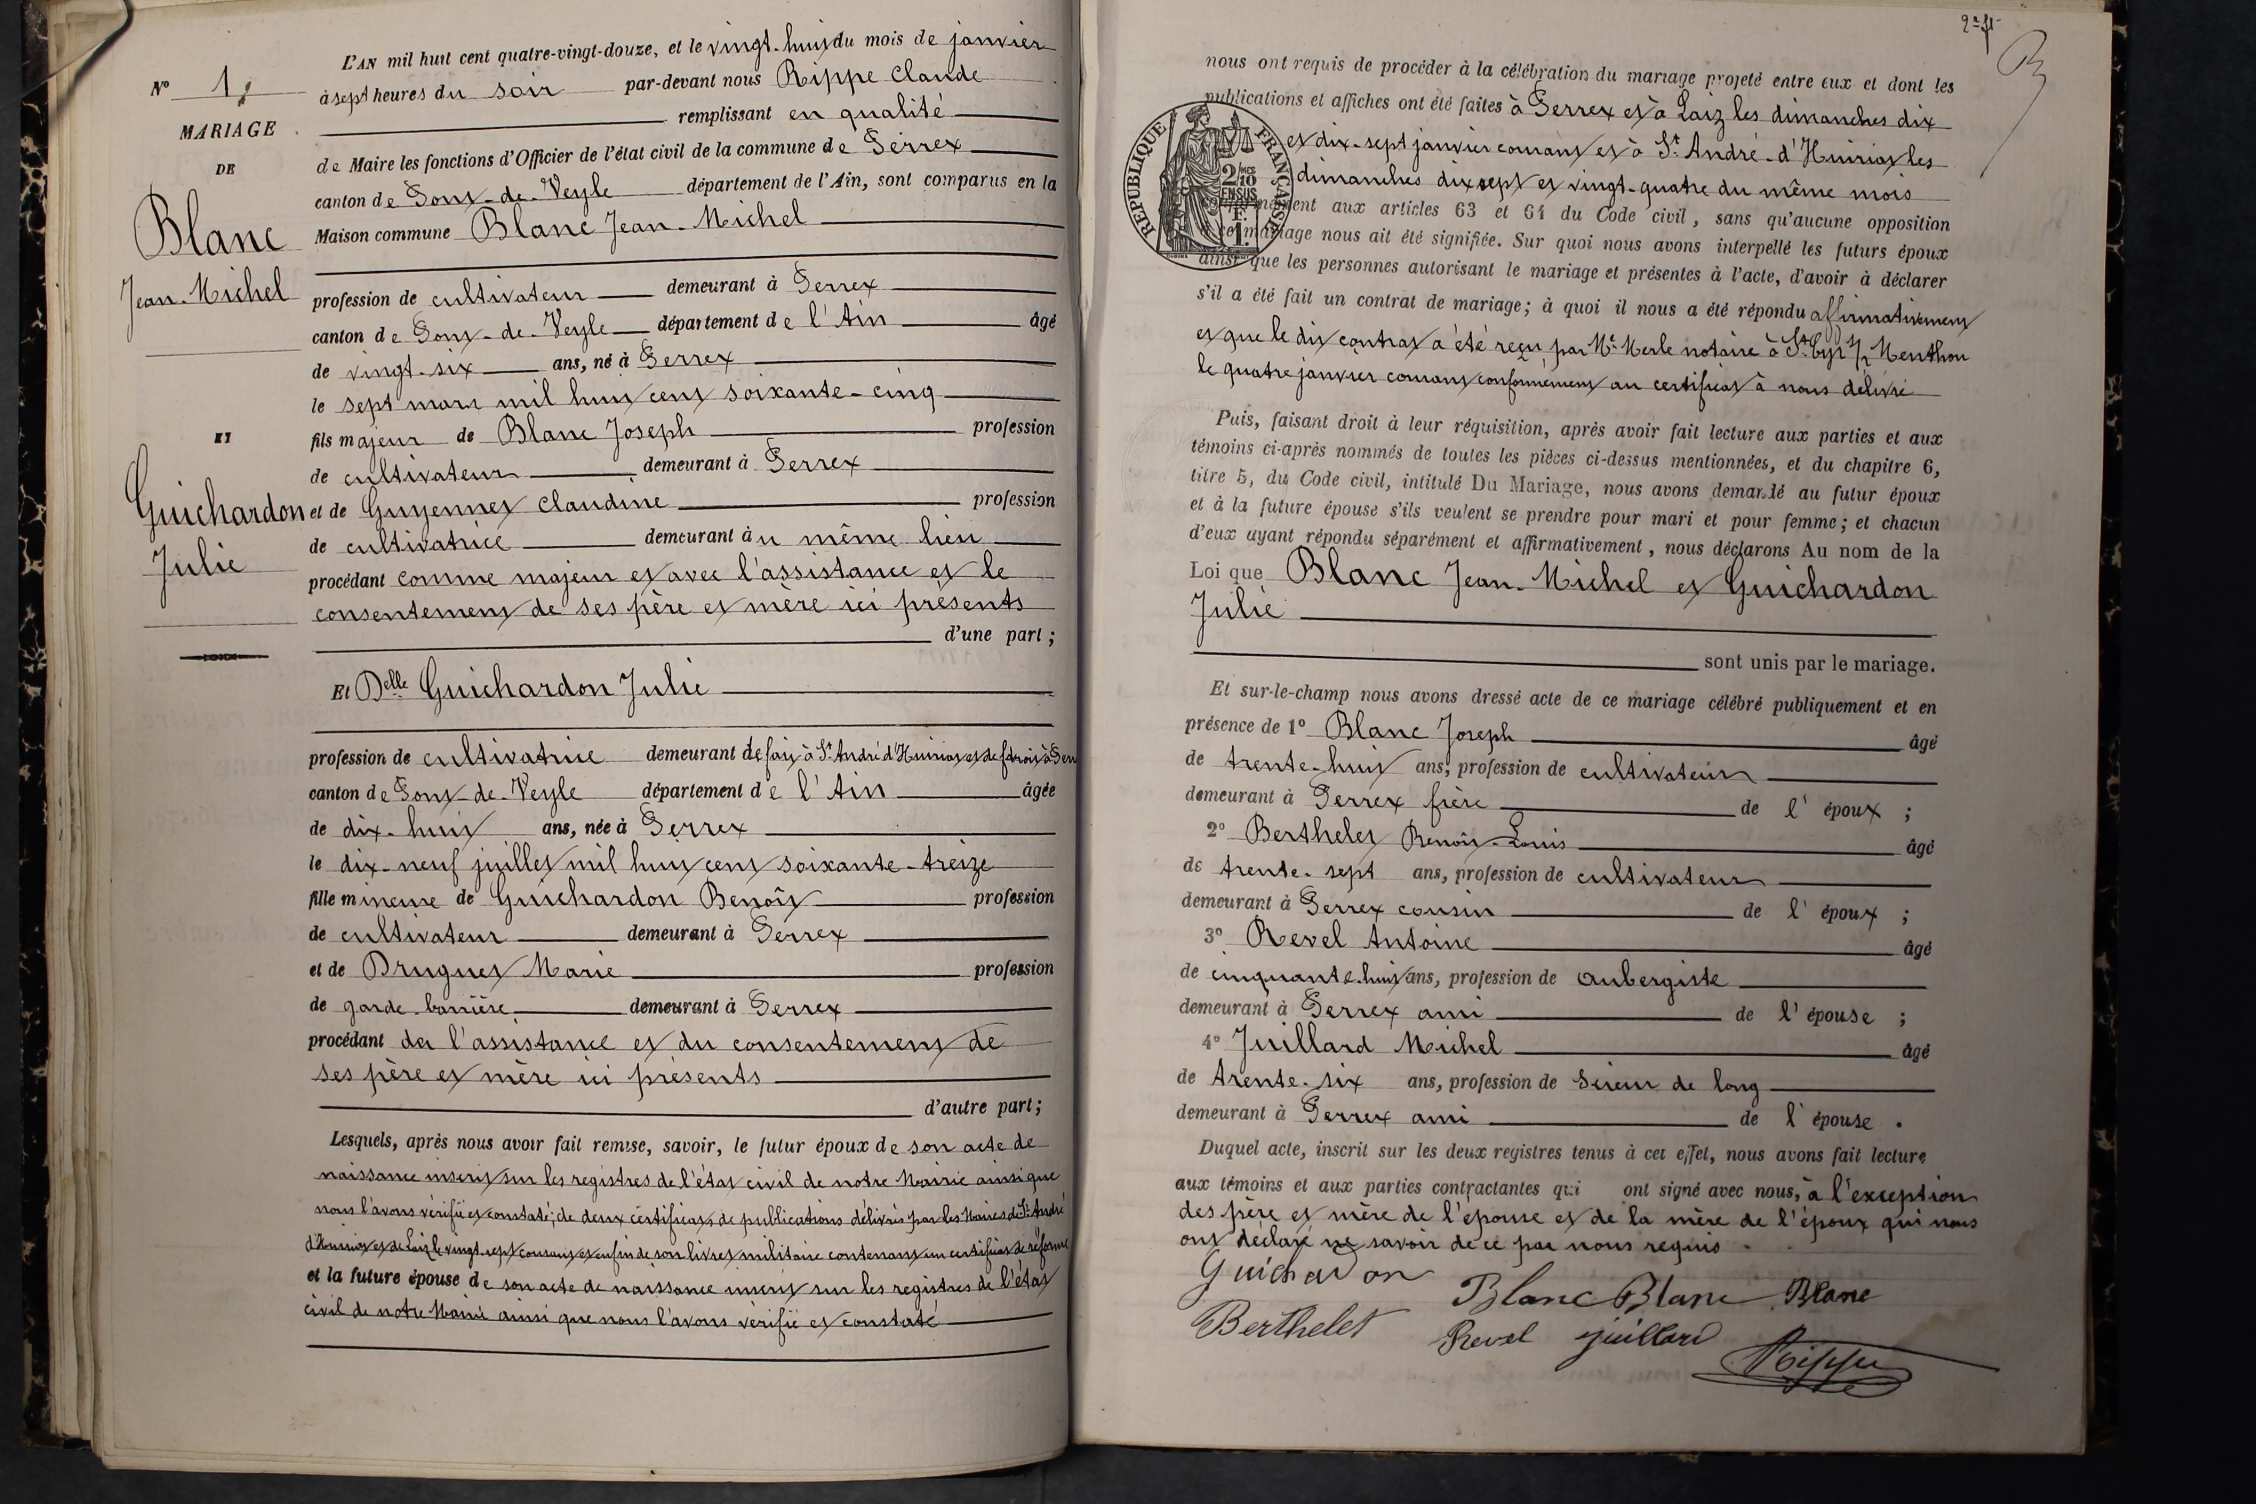 L'AN mil huit cent quatre-vingt-douze, et le vingt-huit du mois de janvier
N° 1
à sept heures du soir par-devant nous Rippe Claude
MARIAGE
remplissant en qualité
DE
de Maire les fonctions d'Officier de l'état civil de la commune de Perrex
canton de Pont-de-Veyle département de l'Ain, sont comparus en la
Blanc
Maison commune Blanc Jean-Michel
Jean-Michel
profession de cultivateur demeurant à Perrex
canton de Pont-de-Veyle département de l'Ain âgé
de vingt-six ans, né à Perrex
le sept mars mil huit cent soixante-cinq
ET
fils majeur de Blanc Joseph profession
de cultivateur demeurant à Perrex
Guichardon
et de Guyennet Claudine profession
Julie
de cultivatrice demeurant au même lieu
procédant comme majeur et avec l'assistance et le
consentement de ses père et mère ici présents
d'une part ;
Et Delle Guichardon Julie
profession de cultivatrice demeurant de fait à St André d'Huiriat et de droit à Perrex
canton de Pont-de-Veyle département de l'Ain âgée
de dix-huit ans, née à Perrex
le dix-neuf juillet mil huit cent soixante-treize
fille mineure de Guichardon Benoît profession
de cultivateur demeurant à Perrex
et de Druguet Marie profession
de garde-barrière demeurant à Perrex
procédant de l'assistance et du consentement de
ses père et mère ici présents
d'autre part ;
Lesquels, après nous avoir fait remise, savoir, le futur époux de son acte de
naissance inscrit sur les registres de l'état civil de notre Mairie ainsi que
nous l'avons vérifié et constaté ; de deux certificats de publications délivrés par les Maires de St André
d'Huiriat et de Laiz le vingt-sept courant et enfin de son livret militaire contenant un certificat de réforme
et la future épouse de son acte de naissance inscrit sur les registres de l'état
civil de notre Mairie ainsi que nous l'avons vérifié et constaté
nous ont requis de procéder à la célébration du mariage projeté entre eux et dont les
publications et affiches ont été faites à Perrex et à Laiz les dimanches dix
et dix-sept janvier courant et à St André-d'Huiriat les
dimanches dix sept et vingt-quatre du même mois
conformément aux articles 63 et 64 du Code civil, sans qu'aucune opposition
à ce mariage nous ait été signifiée. Sur quoi nous avons interpellé les futurs époux
ainsi que les personnes autorisant le mariage et présentes à l'acte, d'avoir à déclarer
s'il a été fait un contrat de mariage ; à quoi il nous a été répondu affirmativement
et que le dit contrat a été reçu par Me Merle notaire à St Cyr s/ Menthon
le quatre janvier courant conformément au certificat à nous délivré
REPUBLIQUE FRANÇAISE
2/10 EN SUS
1 F.
Puis, faisant droit à leur réquisition, après avoir fait lecture aux parties et aux
témoins ci-après nommés de toutes les pièces ci-dessus mentionnées, et du chapitre 6,
titre 5, du Code civil, intitulé Du Mariage, nous avons demandé au futur époux
et à la future épouse s'ils veulent se prendre pour mari et pour femme ; et chacun
d'eux ayant répondu séparément et affirmativement, nous déclarons Au nom de la
Loi que Blanc Jean-Michel et Guichardon
Julie
sont unis par le mariage.
Et sur-le-champ nous avons dressé acte de ce mariage célébré publiquement et en
présence de 1° Blanc Joseph âgé
de trente-huit ans, profession de cultivateur
demeurant à Perrex frère de l'époux ;
2° Berthelet Benoît-Louis âgé
de trente-sept ans, profession de cultivateur
demeurant à Perrex cousin de l'époux ;
3° Revel Antoine âgé
de cinquante-huit ans, profession de aubergiste
demeurant à Perrex ami de l'épouse ;
4° Juillard Michel âgé
de trente-six ans, profession de scieur de long
demeurant à Perrex ami de l'épouse.
Duquel acte, inscrit sur les deux registres tenus à cet effet, nous avons fait lecture
aux témoins et aux parties contractantes qui ont signé avec nous, à l'exception
des père et mère de l'épouse et de la mère de l'époux qui nous
ont déclaré ne savoir de ce par nous requis
Guichardon Blanc Blanc Blanc
Berthelet Revel Juillard Rippe